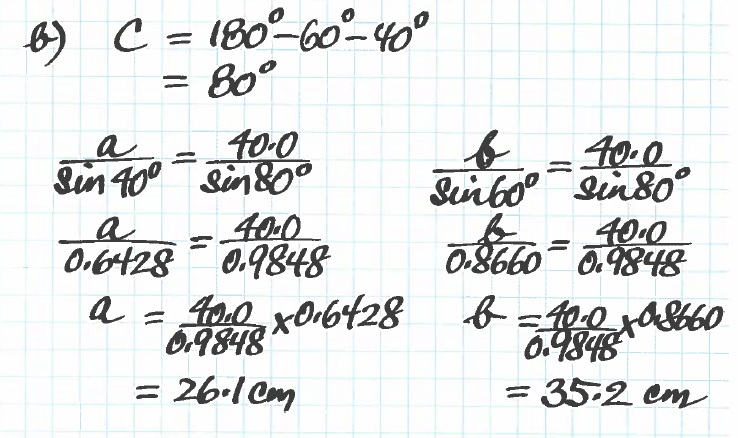 b) C = 180° - 60° - 40°
= 80°
a/sin 40° = 40.0/sin 80°
a/0.6428 = 40.0/0.9848
a = 40.0/0.9848 x 0.6428
= 26.1 cm
b/sin 60° = 40.0/sin 80°
b/0.8660 = 40.0/0.9848
b = 40.0/0.9848 x 0.8660
= 35.2 cm